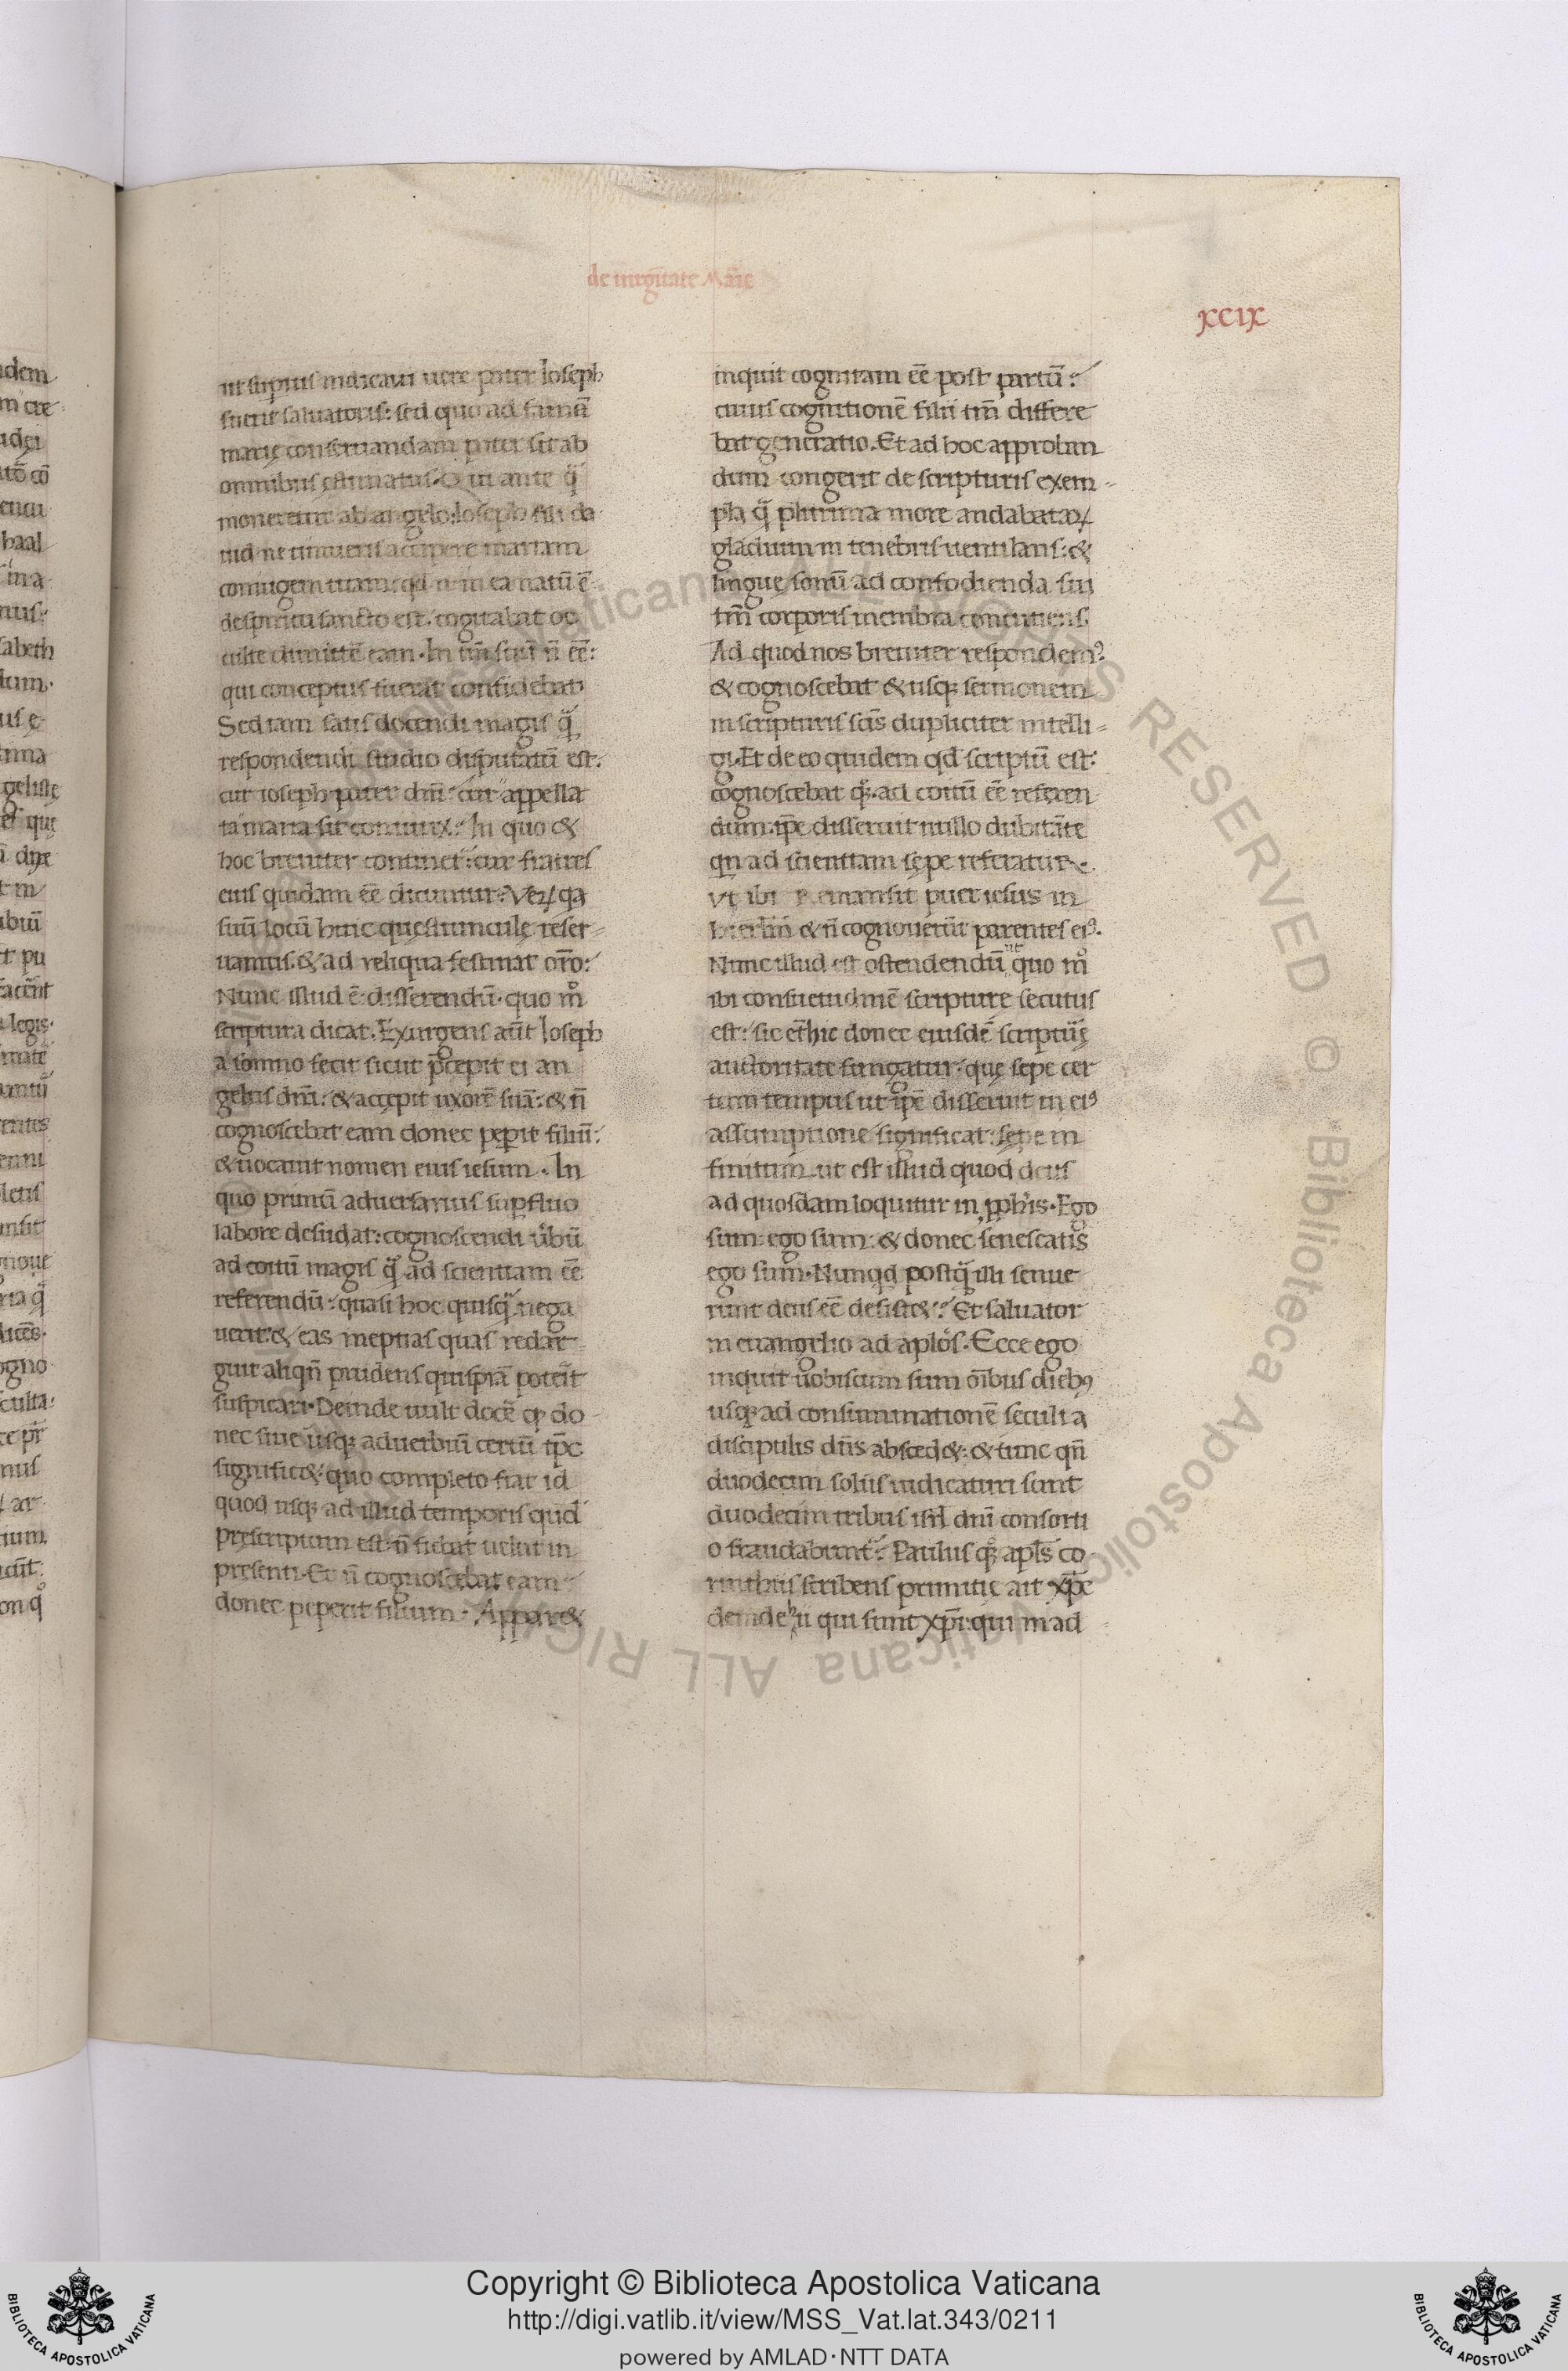 de uirgĩtate Maĩe
xcix
ut supius indicaui uere pater Ioseph
fuerit saluatoris: sed quo ad famã
marię conseruandam pater sit ab
omnibus ęstimatus. Qui ante q̃
moneretur ab angelo: Ioseph fili da
uid ne timueris accipere mariam
coniugem tuam: qd̃ n̄ in ea natũ ē
de spiritu sancto est. cogitabat oc
culte dimittē eam. In tm̃ suũ ñ eē:
qui conceptus fuerat confidebat
Sed iam satis docendi magis q̃
respondendi studio disputatũ est.
cur ioseph pater dñi: cur appella
ta maria sit coniunx. In quo &
hoc breuiter continet̃: cur fratres
eius quidam eē dicuntur. Veꝝ qa
suũ locũ huic questiuncule reser
uamus. & ad reliqua festinat or̃o:
Nunc illud ē disserendũ. quo mo
scriptura dicat. Exurgens aũt Ioseph
a somno fecit sicut p̃cepit ei an
gelus dñi: & accepit uxorē suã: & ñ
cognoscebat eam donec pepit filiũ:
& uocauit nomen eius iesum. In
quo primũ aduersarius supfluo
labore desudat: cognoscendi ũbũ
ad coitũ magis q̃ ad scientiam eē
referendũ: quasi hoc quisq̃ nega
uerit: & eas ineptias quas redar
guit aliqñ prudens quispiã potẽit
suspicari. Deinde uult docē qꝫ do
nec siue usqꝫ aduerbiũ certũ tp̃c
signific&: quo completo fiat id
quod usqꝫ ad illud temporis quod
prescriptum est ñ fiebat uelut in
presenti. Et ñ cognoscebat eam
donec peperit filium. Appar&
inquit cognitam eē post partũ:
cuius cognitionē filii tm̃ differe
bat generatio. Et ad hoc approban
dum congerit de scripturis exem
pla q̃ plurima more andabataꝝ
gladium in tenebris uentilans: &
linguę sonũ ad confodienda sui
tm̃ corporis membra concutiens.
Ad quod nos breuiter respondemꝰ
& cognoscebat & usqꝫ sermonem
in scripturis sc̃is dupliciter intelli
gi. Et de eo quidem qd̃ scriptũ est:
cognoscebat qꝫ. ad coitũ eē referen
dum. ip̃e disseruit nullo dubitãte
qn ad scientiam sępe referatur.
Vt ibi Remansit puer iesus in
hierlm̃ & ñ cognouerũt parentes eiꝰ.
Nunc illud est ostendendũ ut quo mo
ibi consuetudinē scripture secutus
est: sic et̃ hic donec eiusdē scriptu̇ę
auctoritate fungatur: quę sępe cer
tum tempus ut ip̃e disseruit in eiꝰ
assumptione significat: sępe in
finitum ut est illud quod deus
ad quosdam loquitur in p̱phis. Ego
sum ego sum: & donec senescatis
ego sum. Nunqd postq̃ illi senue
runt deus eē desist&? Et saluator
in euangelio ad aplos. Ecce ego
inquit uobiscum sum oĩbus diebꝰ
usqꝫ ad consummationē seculi a
discipulis dñs absced&: & tunc qñ
duodecim soliis iudicaturi sunt
duodecim tribus isr̃l dñi consorti
o fraudabunt̃? Paulus qꝫ apls co
rinthiis scribens primitie ait xp̃c
deinde hii qui sunt xp̃i: qui in ad
Copyright © Biblioteca Apostolica Vaticana
http://digi.vatlib.it/view/MSS_Vat.lat.343/0211
powered by AMLAD·NTT DATA